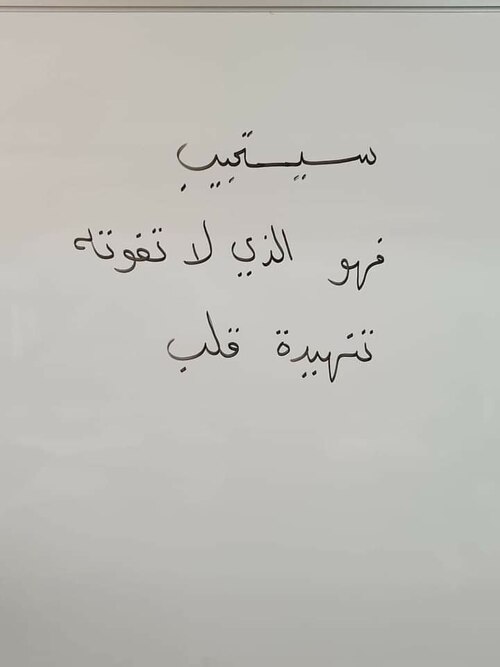 سيستجيب
فهو الذي لا تفوته
تنهيدة قلب